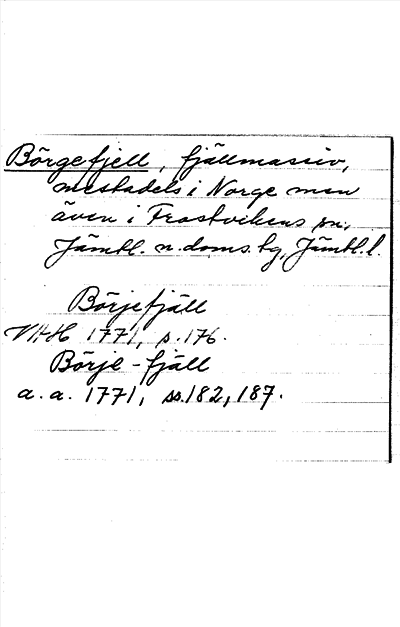 Börgefjell, fjällmassiv,
mestadels i Norge men
även i Frostvikens sn,
Jämtl. n. doms. hg, Jämtl. l.
Börjefjäll
VAH 1771, s. 176.
Börje-fjäll
a. a. 1771, ss. 182, 187.